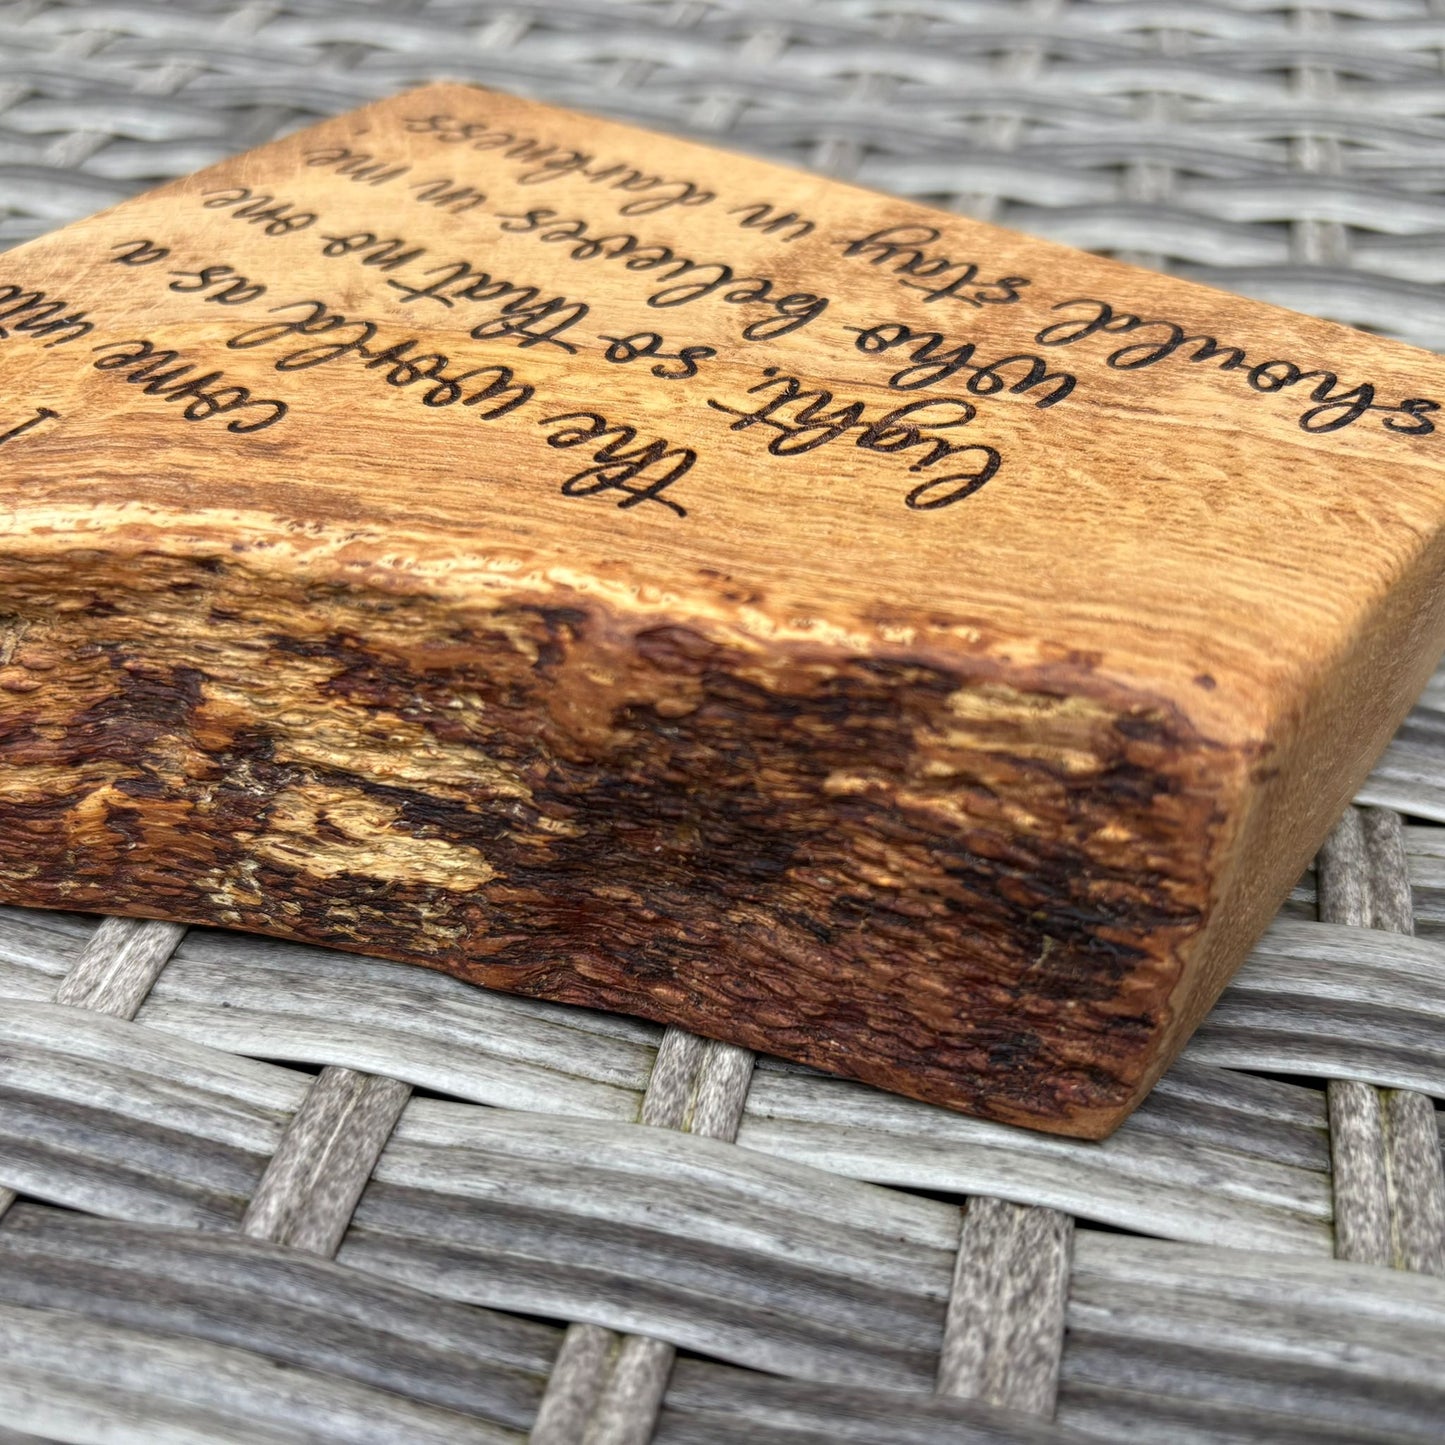 I
come into
the world as a
light, so that no one
who believes in me
should stay in darkness.